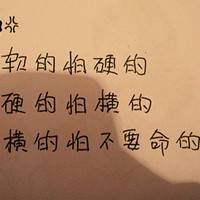 软的怕硬的
硬的怕横的
横的怕不要命的